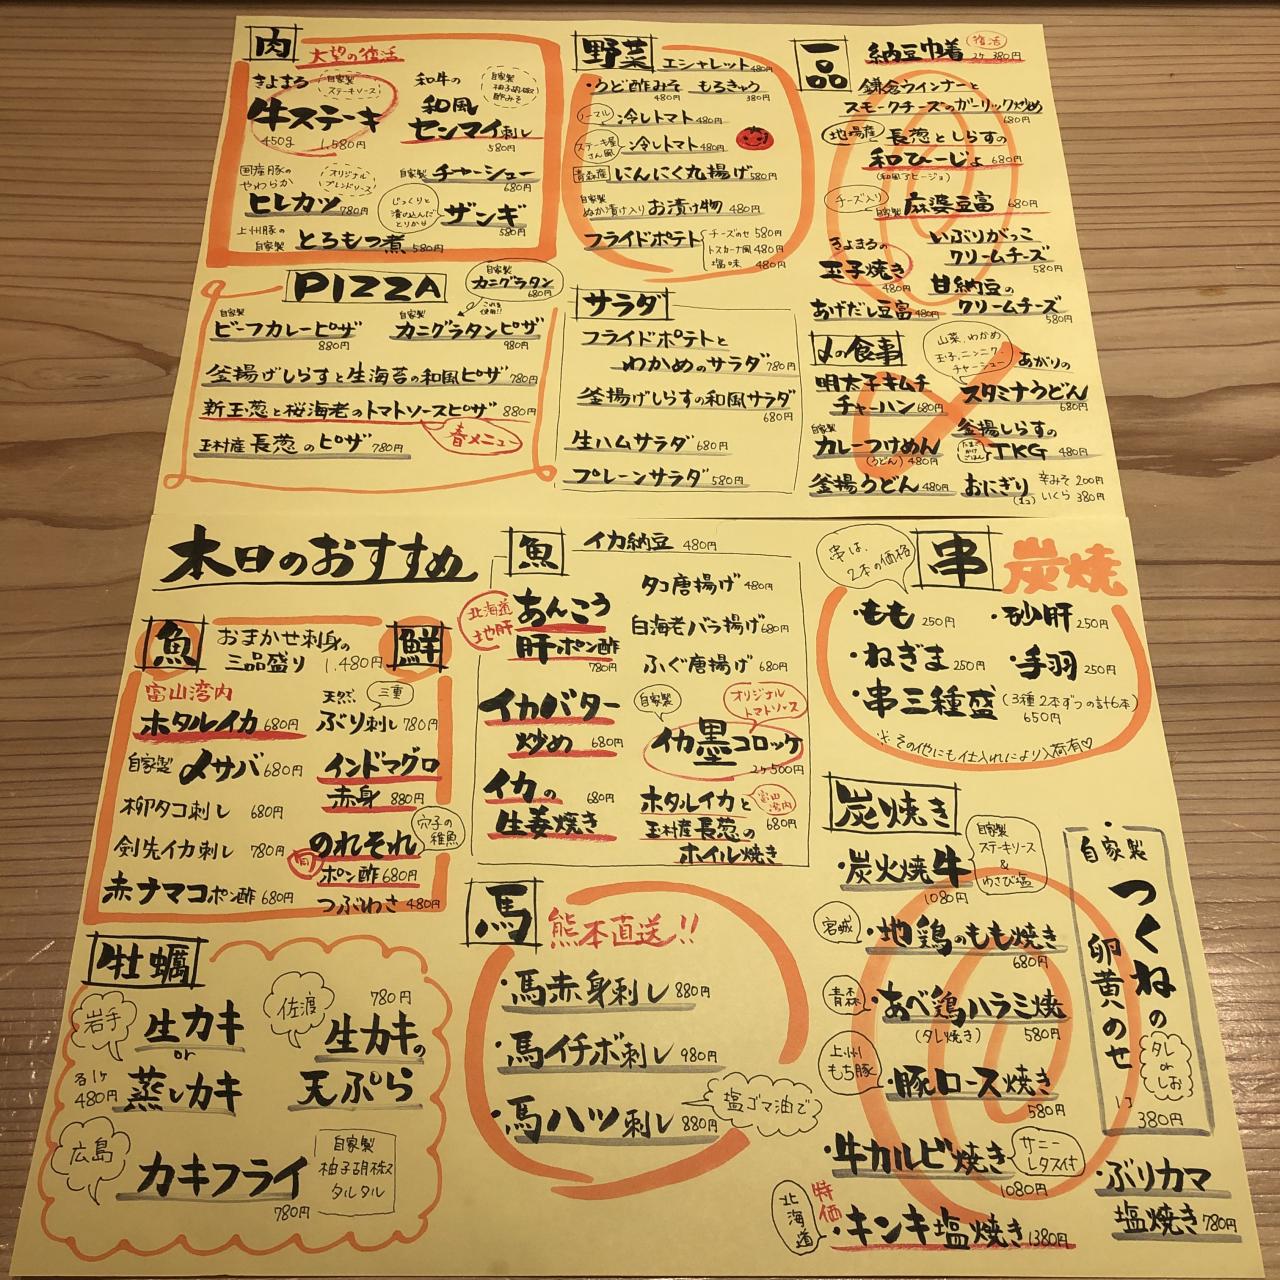 肉
大望の復活
きよまる
自家製
ステーキソース
牛ステーキ
450g 1,580円
和牛の
自家製
柚子胡椒
酢みそ
和風
センマイ刺し
580円
国産豚の
やわらか
オリジナル
ブレンドソース
ヒレカツ 780円
自家製 チャーシュー
680円
じっくりと
漬け込んだ
とりから
ザンギ
580円
上州豚の
自家製 とろもつ煮 580円
PIZZA
自家製
カニグラタン
680円
これを
使用!!
自家製
ビーフカレーピザ
880円
自家製
カニグラタンピザ
980円
釜揚げしらすと生海苔の和風ピザ 780円
新玉葱と桜海老のトマトソースピザ 880円
春メニュー
玉村産長葱のピザ 780円
野菜
エシャレット 480円
・うど酢みそ
480円
もろきゅう
380円
ノーマル 冷しトマト 480円
ステーキ屋
さん風
冷しトマト 480円
青森産 にんにく丸揚げ 580円
自家製
ぬか漬け入り お漬け物 480円
フライドポテト
チーズのせ 580円
トスカーナ風 480円
塩味 480円
サラダ
フライドポテトと
わかめのサラダ 780円
釜揚げしらすの和風サラダ
680円
生ハムサラダ 680円
プレーンサラダ 580円
一品
納豆巾着
復活
2ケ 380円
鎌倉ウインナーと
スモークチーズのガーリック炒め
680円
地場産 長葱としらすの
和ひーじょ 680円
(和風アヒージョ)
チーズ入り
自家製 麻婆豆富
680円
きよまるの
玉子焼き
480円
いぶりがっこ
クリームチーズ
580円
あげだし豆富 480円
甘納豆の
クリームチーズ
580円
〆の食事
明太子キムチ
チャーハン 680円
山菜、わかめ
玉子、ニンニク
チャーシュー
あがりの
スタミナうどん
680円
自家製
カレーつけめん
(うどん) 480円
釜揚しらすの
たまご
かけ
ごはん
TKG 480円
釜揚うどん 480円
おにぎり
(1コ)
辛みそ 200円
いくら 380円
本日のおすすめ
魚
鮮
おまかせ刺身の
三品盛り 1,480円
富山湾内
ホタルイカ 680円
天然
三重
ぶり刺し 780円
自家製 〆サバ 680円
インドマグロ
赤身 880円
柳タコ刺し 680円
剣先イカ刺し 780円
穴子の
稚魚
のれそれ
ポン酢 680円
赤ナマコポン酢 680円
つぶわさ 480円
牡蠣
岩手
生カキ
or
各1ケ
480円
蒸しカキ
佐渡
780円
生カキの
天ぷら
広島
カキフライ
780円
自家製
柚子胡椒
タルタル
魚
イカ納豆 480円
北海道
地肝
あんこう
肝ポン酢
780円
タコ唐揚げ 480円
白海老バラ揚げ 680円
ふぐ唐揚げ 680円
イカバター
炒め 680円
自家製
オリジナル
トマトソース
イカ墨コロッケ
2ケ 500円
イカの 680円
生姜焼き
ホタルイカと
富山
湾内
玉村産長葱の 680円
ホイル焼き
馬
熊本直送!!
・馬赤身刺し 880円
・馬イチボ刺し 980円
・馬ハツ刺し 880円
塩ゴマ油で
串は、
2本の価格
串
炭焼
・もも 250円
・砂肝 250円
・ねぎま 250円
・手羽 250円
・串三種盛 (3種2本ずつの計6本)
650円
※その他にも仕入れにより入荷有♡
炭焼き
・炭火焼牛
1080円
自家製
ステーキソース
&
わさび塩
宮城
・地鶏のもも焼き
680円
青森
・あべ鶏ハラミ焼
(タレ焼き) 580円
上州
もち豚
・豚ロース焼き
580円
・牛カルビ焼き
1080円
サニー
レタス付
北海道
特価
・キンキ塩焼き 1380円
・自家製 つくねの
卵黄のせ
タレ
or
しお
1コ
380円
・ぶりカマ
塩焼き 780円